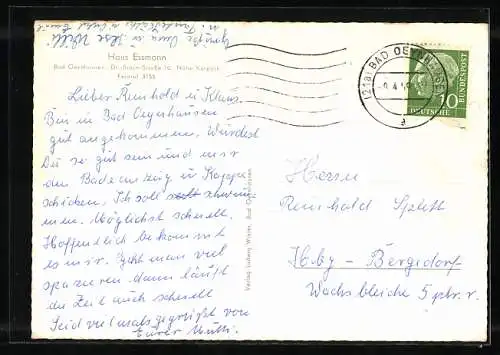 Haus Essmann
Bad Oeynhausen, Dr.-Braun-Straße 10, Nähe Kurpark
Fernruf 3155
Lieber Reinhold u. Klaus.
Bin in Bad Oeynhausen
gut angekommen. Würdest
Du so gut sein und mir
den Badeanzug u. Kappe
schicken. Ich soll schwim
men. Möglichst schnell.
Hoffentlich bekommt
es mir. Geht man viel
spazieren dann läuft
die Zeit auch schnell
Seid vielmals gegrüßt von
Eurer Mutti.
Verlag Ludwig Winter, Bad Oeynhausen
(21a) BAD OEYNHAUSEN
a
DEUTSCHE
BUNDESPOST
10
Herrn
Reinhold Splett
Hbg-Bergedorf
Wachsbleiche 5 ptr. r.